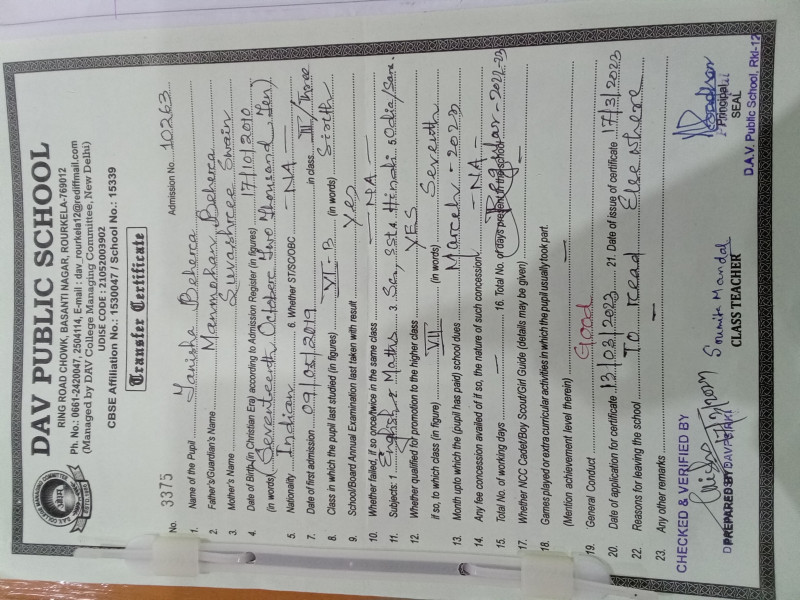 DAV PUBLIC SCHOOL
RING ROAD CHOWK, BASANTI NAGAR, ROURKELA-769012
Ph. No.: 0661-2420047, 2504114, E-mail : dav_rourkela12@rediffmail.com
(Managed by DAV College Managing Committee, New Delhi)
UDISE CODE : 21052003902
CBSE Affiliation No.: 1530047 / School No.: 15339
Transfer Certificate
No. 3375 Admission No. 10263
1. Name of the Pupil Tanisha Behera
2. Father's/Guardian's Name Manmohan Behera
3. Mother's Name Suvashree Swain
4. Date of Birth (in Christian Era) according to Admission Register (in figures) 17/10/2010
(in words) (Seventeenth October Two Thousand Ten)
5. Nationality Indian 6. Whether ST/SC/OBC -NA-
7. Date of first admission 09/03/2019 in class III/Three
8. Class in which the pupil last studied (in figures) VI-B (in words) Sixth
9. School/Board Annual Examination last taken with result Yes
10. Whether failed, if so once/twice in the same class -NA-
11. Subjects: 1 English 2 Maths 3. Sc, SSt 4 Hindi 5 Odia/Sans.
12. Whether qualified for promotion to the higher class YES
if so, to which class (in figure) VII (in words) Seventh
13. Month upto which the (pupil has paid) school dues March-2023
14. Any fee concession availed of if so, the nature of such concession -NA-
15. Total No. of working days — 16. Total No. of days present in the school Regular-2022-23
17. Whether NCC Cadet/Boy Scout/Girl Guide (details may be given) —
18. Games played or extra curricular activities in which the pupil usually took part.
(Mention achievement level therein) —
19. General Conduct Good
20. Date of application for certificate 13/03/2023 21. Date of issue of certificate 17/3/2023
22. Reasons for leaving the school To read Elsewhere
23. Any other remarks —
CHECKED & VERIFIED BY
PREPARED BY
Soumik Mandal
CLASS TEACHER
Principal
SEAL
D.A.V. Public School, Rkl-12